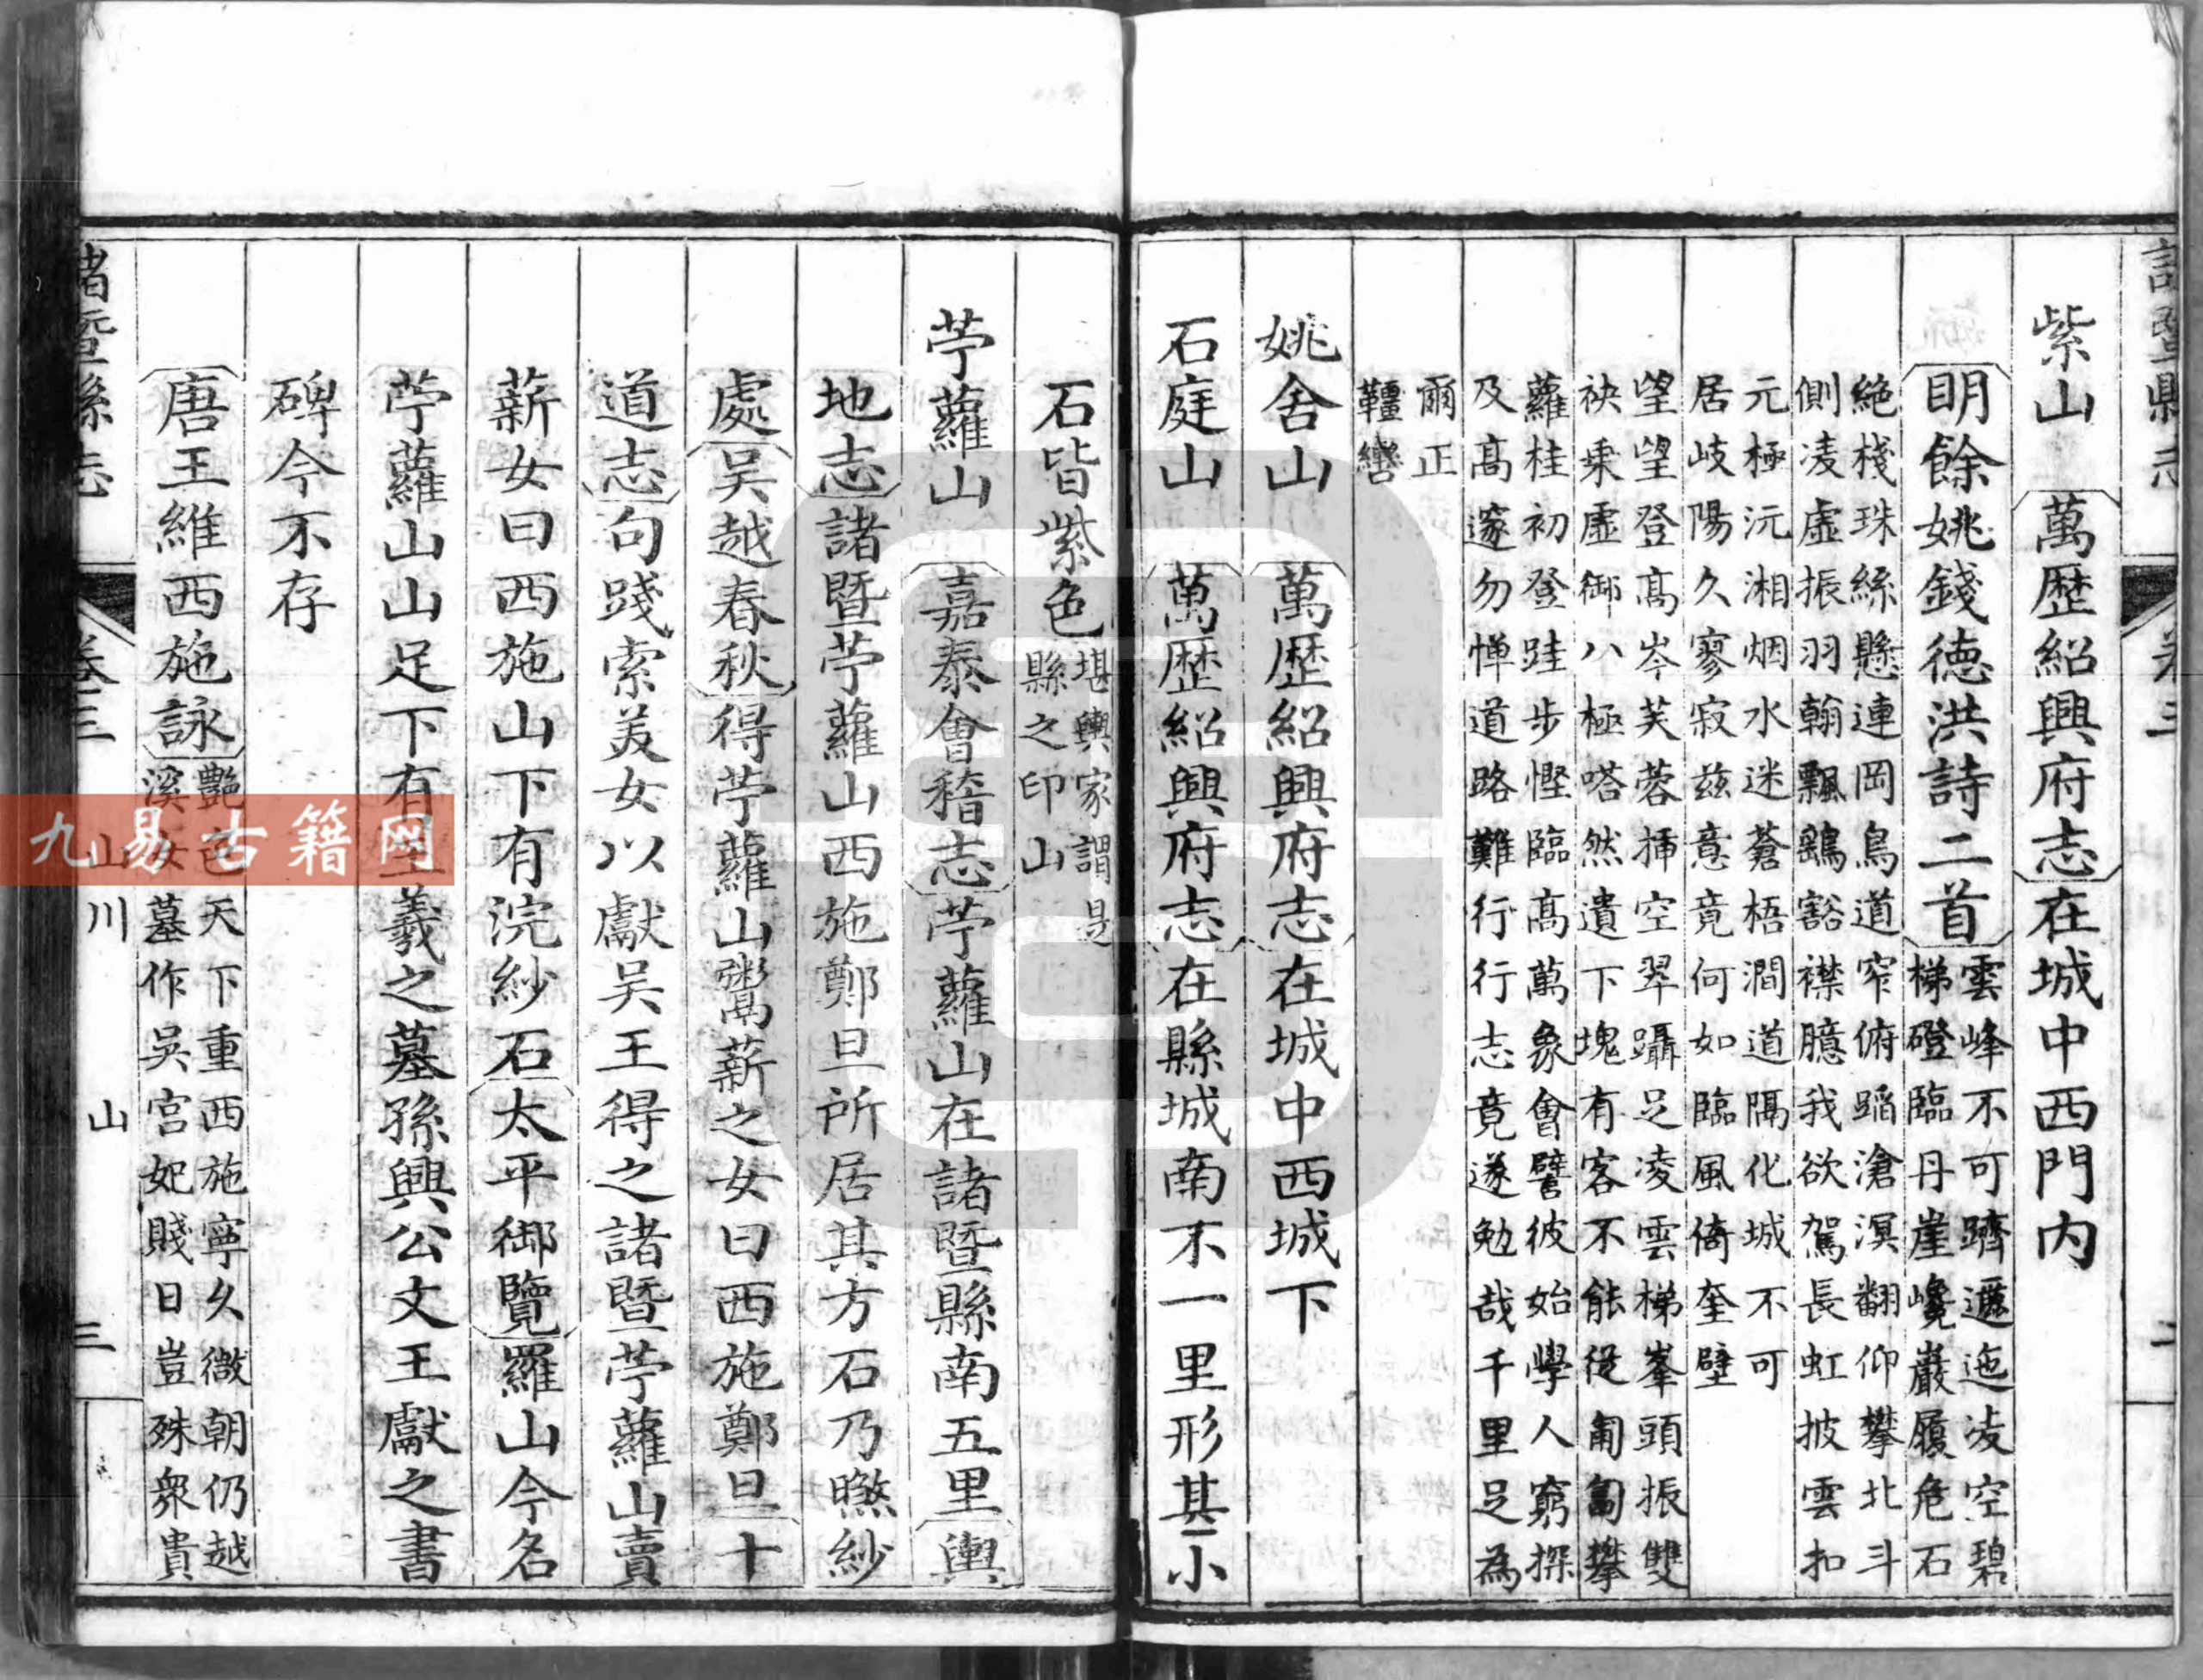 紫山 萬歴紹興府志在城中西門内
明餘姚錢德洪詩二首
雲峰不可躋邐迤凌空碧
梯磴臨丹崖巉巖履危石
絶棧珠絲懸連岡鳥道窄俯蹈滄溟翻仰攀北斗
側凌虚振羽翰飄鷂豁襟臆我欲駕長虹披雲扣
元極沅湘烟水迷蒼梧澗道隔化城不可
居岐陽久寥寂兹意竟何如臨風倚奎壁
望望登髙岑芙蓉揷空翠躡足凌雲梯峯頭振雙
袂乗虚御八極嗒然遺下塊有客不能從匍匐攀
蘿桂初登跬步慳臨髙萬象會譬彼始學人窮探
及髙邃勿惮道路難行行志竟遂勉哉千里足為
爾正
韁轡
姚舍山 萬歴紹興府志在城中西城下
石庭山 萬歴紹興府志在縣城南不一里形其小
石皆紫色
堪輿家謂是
縣之印山
苧蘿山 嘉泰會稽志苧蘿山在諸暨縣南五里輿
地志諸暨苧蘿山西施鄭旦所居其方石乃曬紗
處吴越春秋得苧蘿山鬻薪之女曰西施鄭旦十
道志句踐索美女以獻吴王得之諸暨苧蘿山賣
薪女曰西施山下有浣紗石太平御覽羅山今名
苧蘿山山足下有王羲之墓孫興公文王獻之書
碑今不存
唐王維西施詠
艷色天下重西施寧久微朝仍越
溪女墓作吳宫妃賤日豈殊衆貴
諸暨縣志 卷三 山川 山 三
九易古籍网